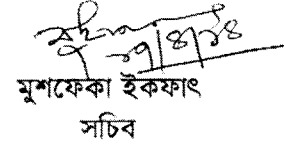 ২৭/৪/১৪
মুশফেকা ইকফাৎ
সচিব